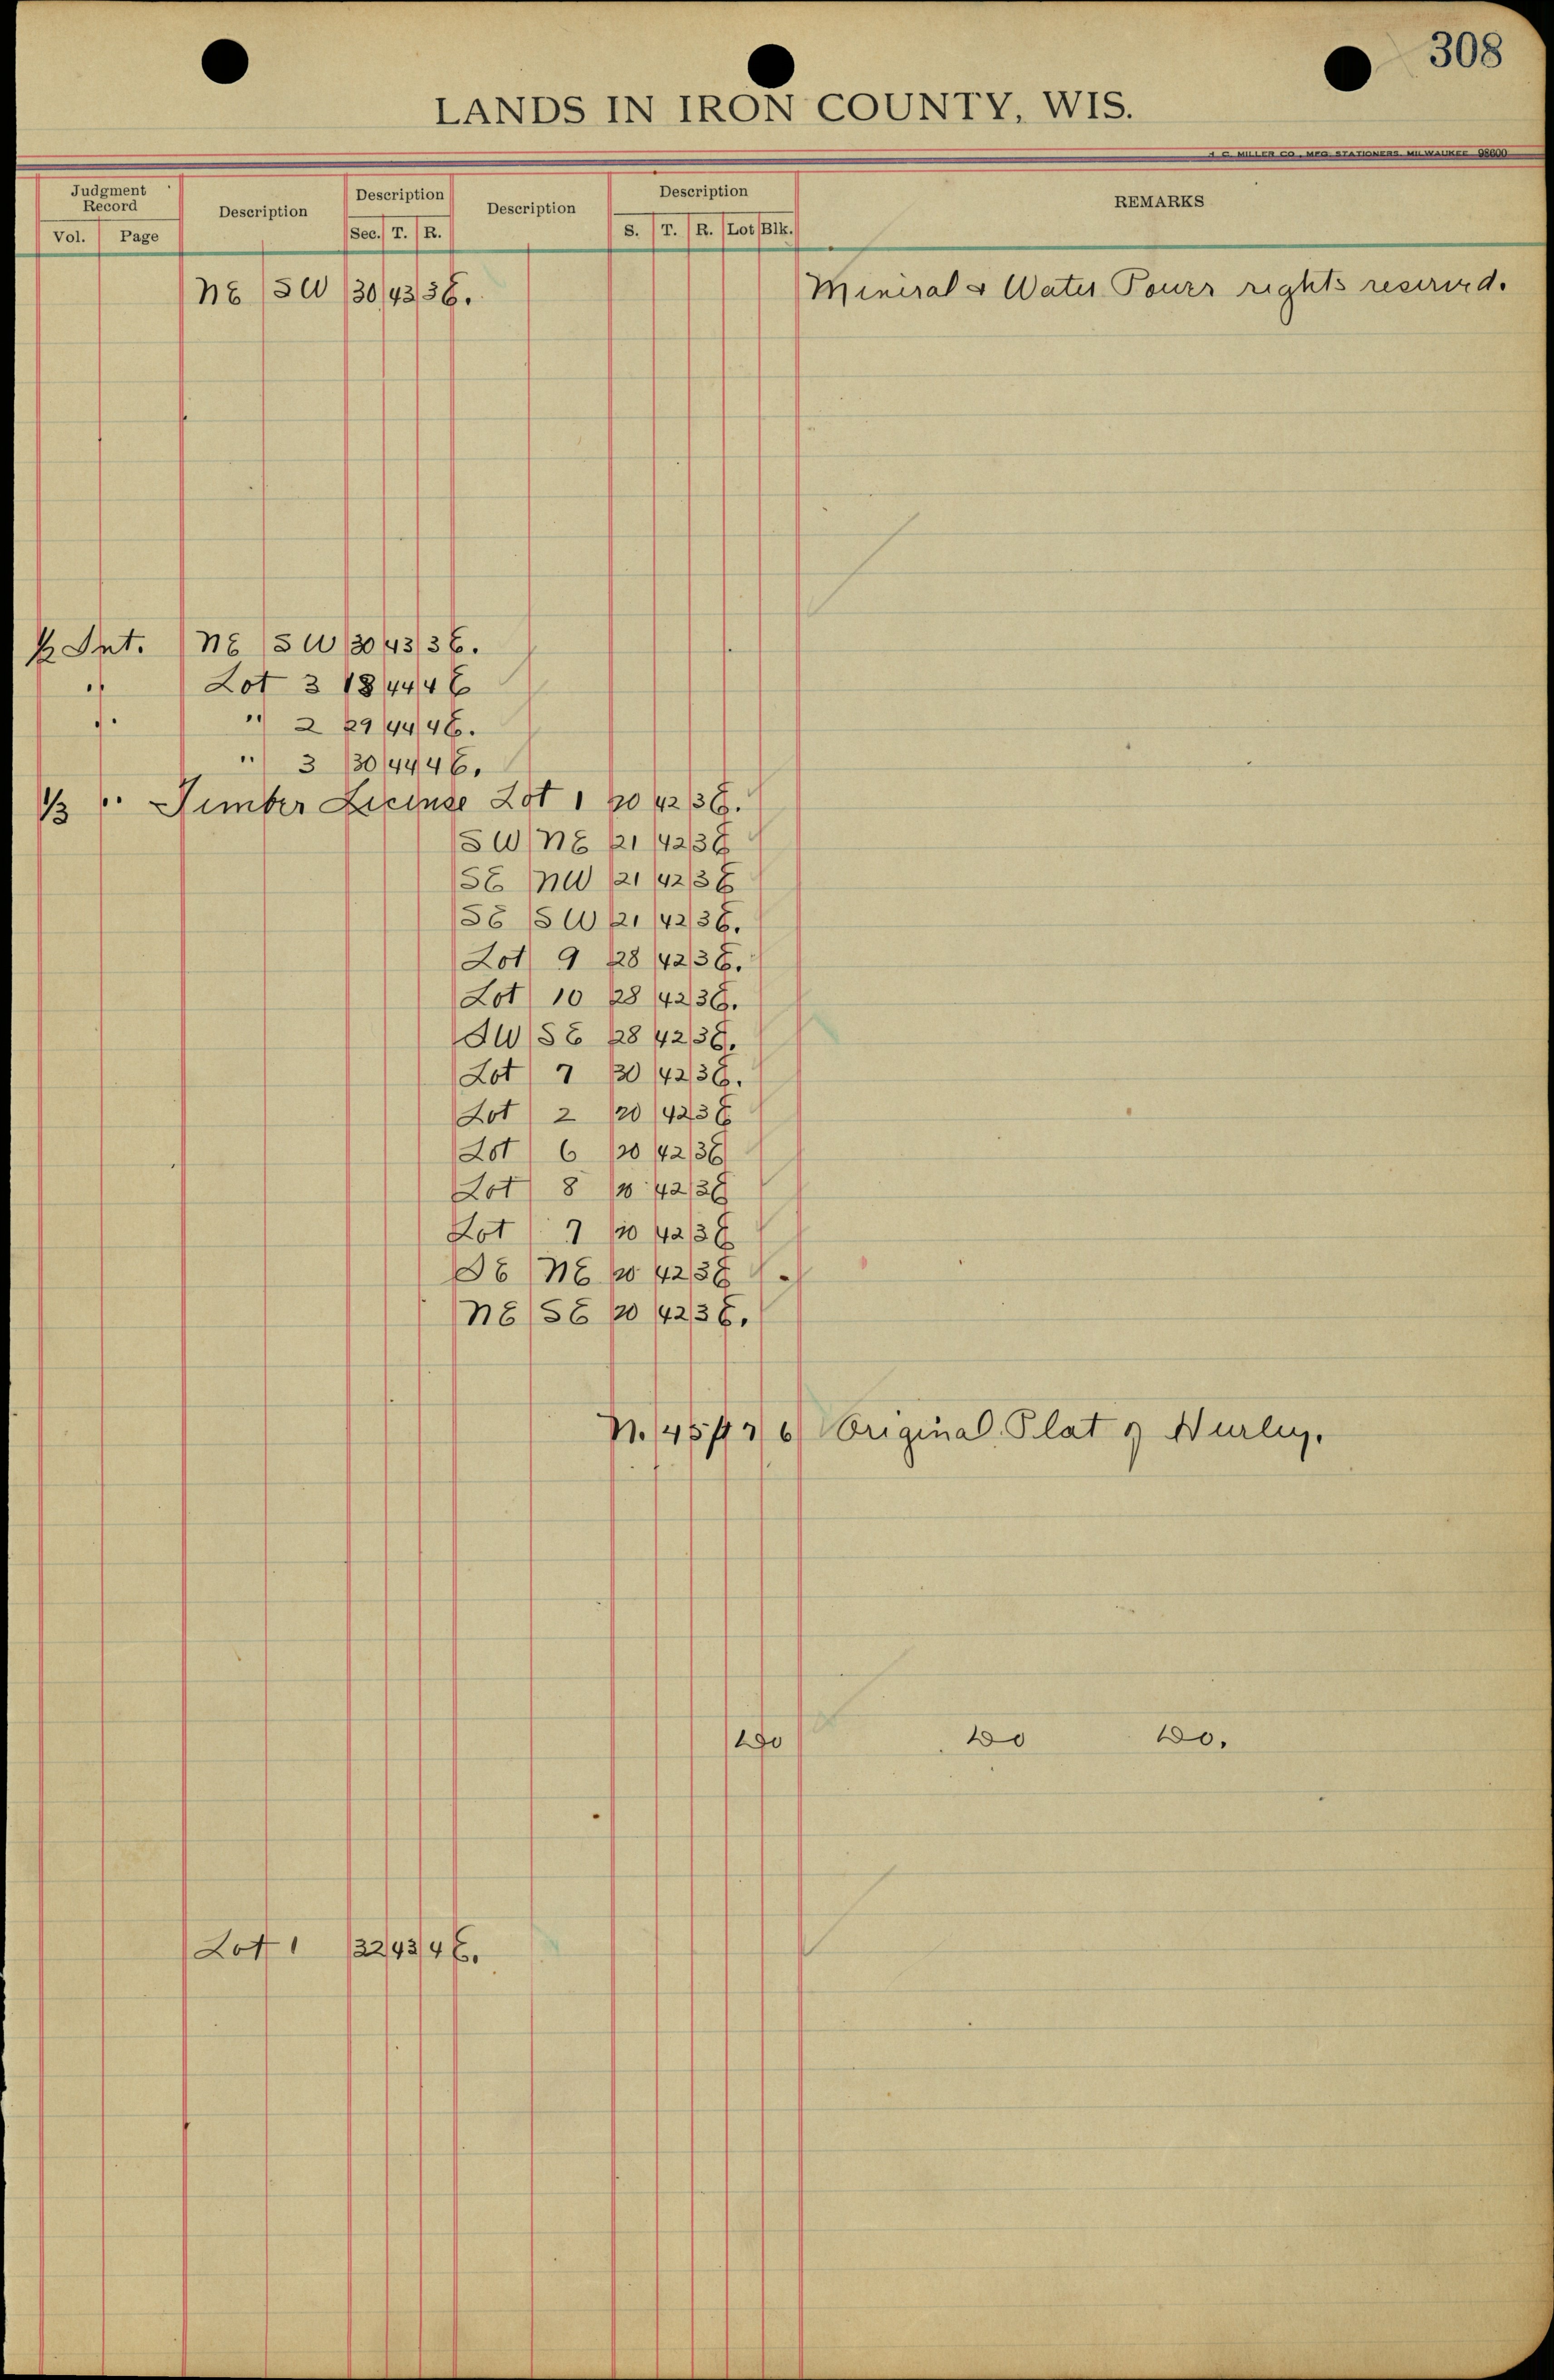 308
LANDS IN IRON COUNTY, WIS.
H. C. MILLER CO., MFG. STATIONERS MILWAUKEE 98600
Judgment Record Description Description Description Description REMARKS
Vol. Page Sec. T. R. S. T. R. Lot Blk.
NE SW 30 43 3E. Mineral & Water Power rights reserved.
½ Int. NE SW 30 43 3E.
" Lot 3 18 44 4E
" " 2 29 44 4E.
" 3 30 44 4E.
1/3 " Timber License Lot 1 20 42 3E.
SW NE 21 42 3E
SE NW 21 42 3E
SE SW 21 42 3E.
Lot 9 28 42 3E.
Lot 10 28 42 3E.
SW SE 28 42 3E.
Lot 7 30 42 3E.
Lot 2 20 42 3E
Lot 6 20 42 3E
Lot 8 20 42 3E
Lot 7 20 42 3E
SE NE 20 42 3E
NE SE 20 42 3E.
N. 45ft 7 6 Original Plat of Hurley.
Do Do Do.
Lot 1 32 43 4E.